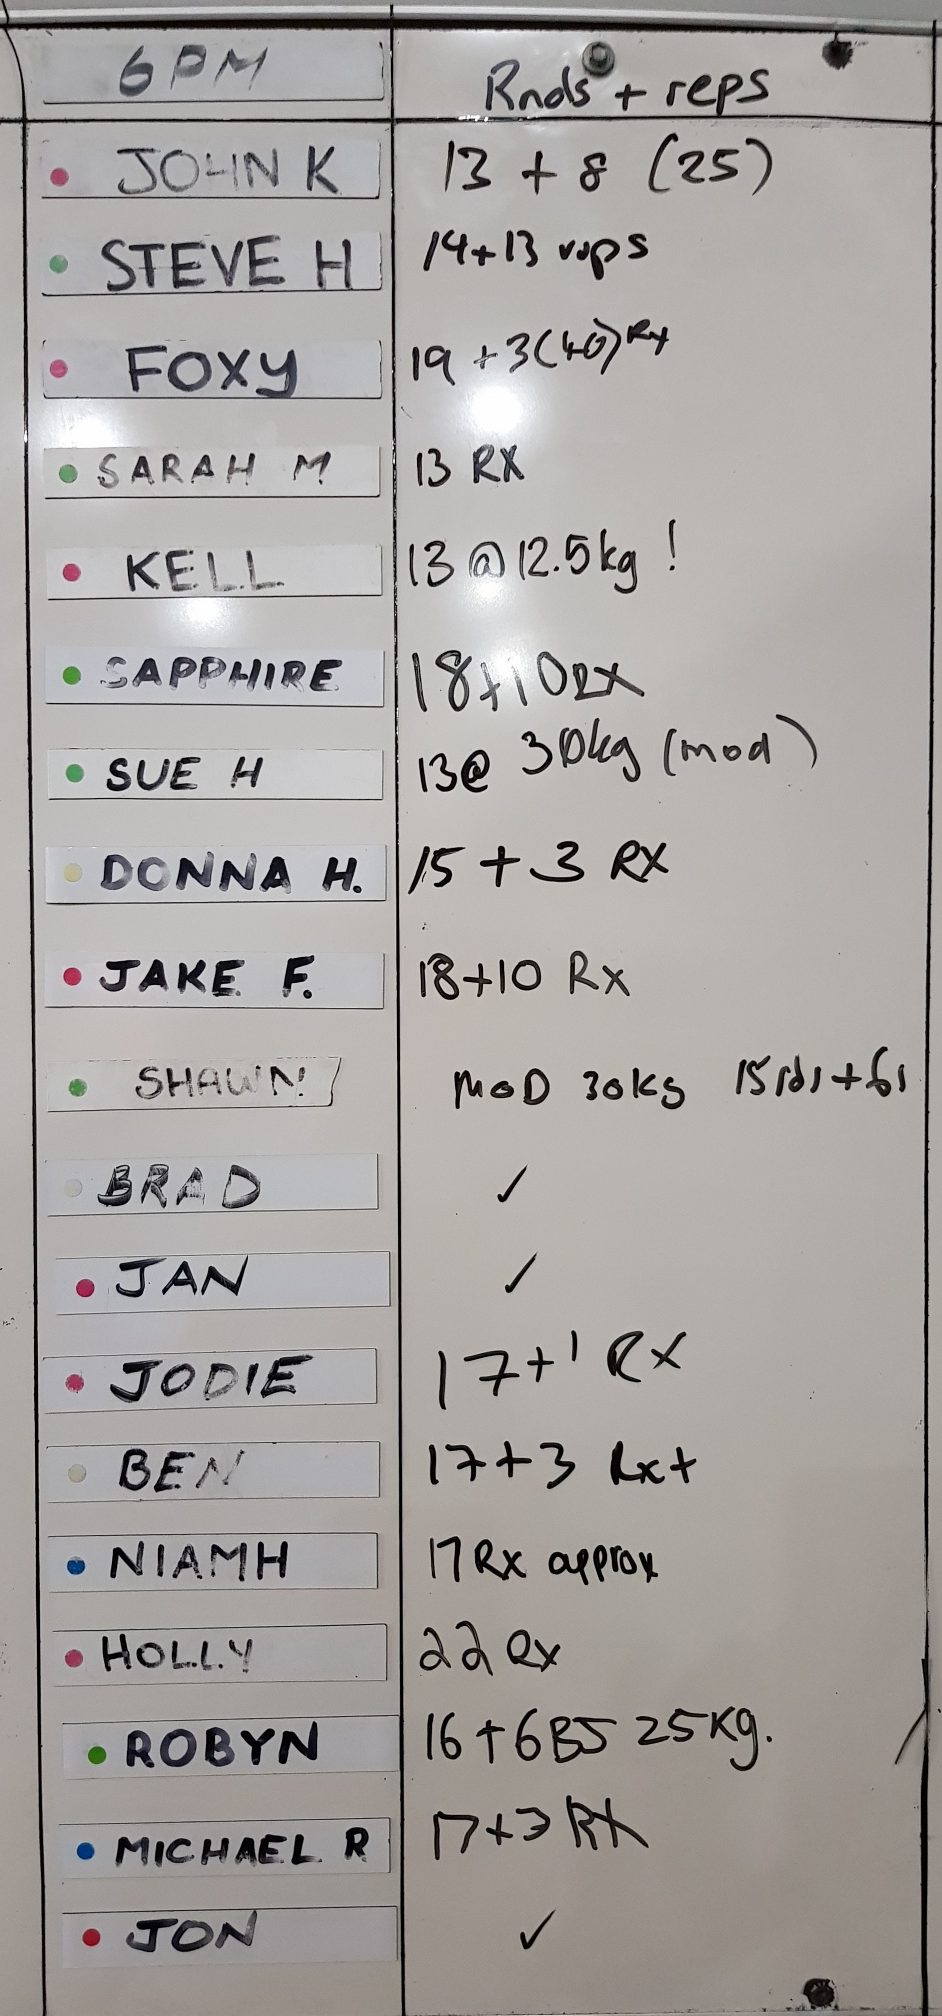 6PM Rnds + reps
JOHN K 13 + 8 (25)
STEVE H 14+13 reps
FOXY 19 + 3(40) Rx
SARAH M 13 RX
KELL 13 @ 12.5kg !
SAPPHIRE 18+10 RX
SUE H 13@ 30kg (mod)
DONNA H. 15 + 3 RX
JAKE F. 18+10 Rx
SHAWN MOD 30KG 15rds+
BRAD ✓
JAN ✓
JODIE 17+1 Rx
BEN 17+3 Rx+
NIAMH 17 Rx approx
HOLLY 22 Rx
ROBYN 16+6BJ 25KG.
MICHAEL R 17+3 RX
JON ✓